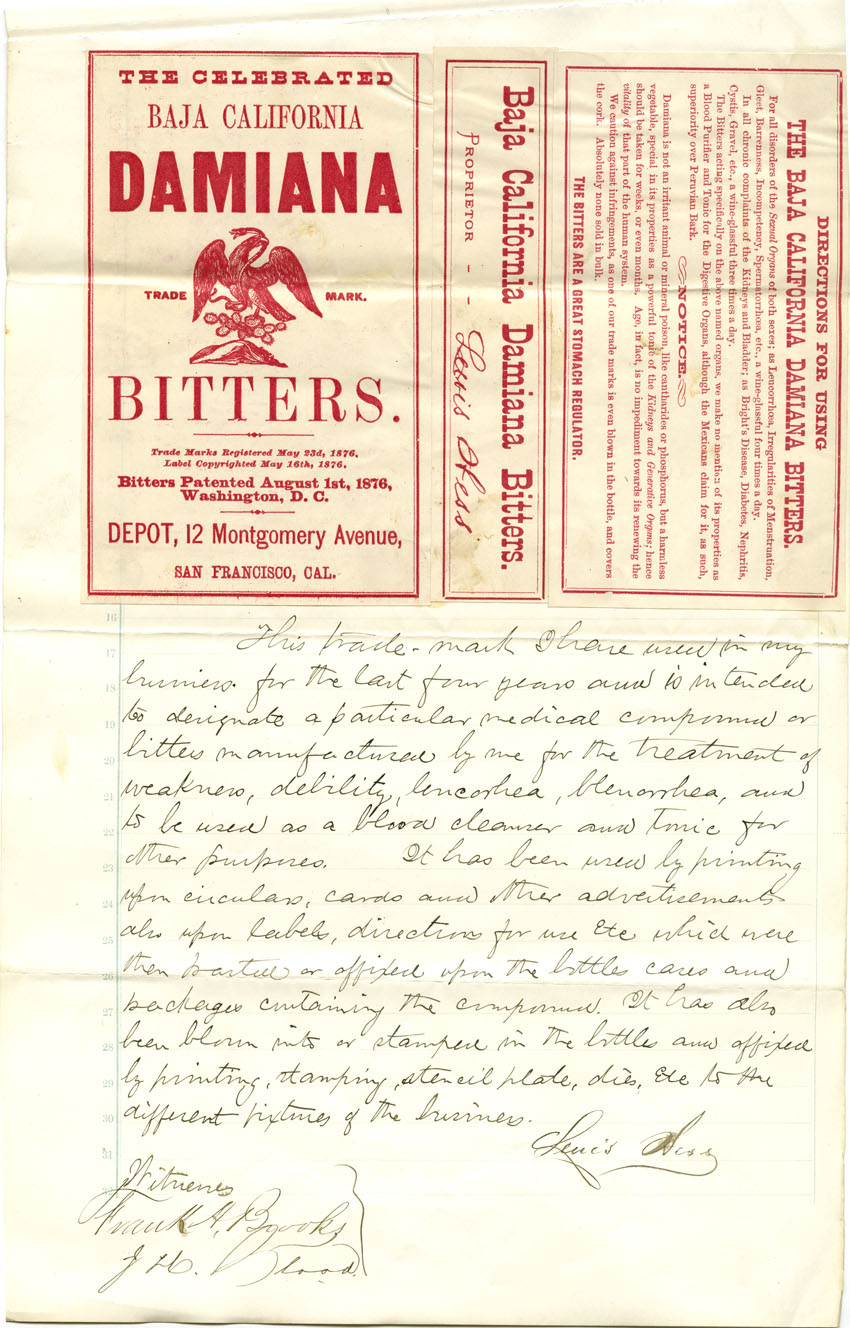 THE CELEBRATED
BAJA CALIFORNIA
DAMIANA
TRADE MARK.
BITTERS.
Trade Marks Registered May 23d, 1876.
Label Copyrighted May 16th, 1876.
Bitters Patented August 1st, 1876,
Washington, D. C.
DEPOT, 12 Montgomery Avenue,
SAN FRANCISCO, CAL.
Baja California Damiana Bitters.
PROPRIETOR - - Lewis Hess
DIRECTIONS FOR USING
THE BAJA CALIFORNIA DAMIANA BITTERS.
For all disorders of the Sexual Organs of both sexes; as Leucorrhoea, Irregularities of Menstruation,
Gleet, Barrenness, Incompetency, Spermatorrhoea, etc., a wine-glassful four times a day.
In all chronic complaints of the Kidneys and Bladder; as Bright's Disease, Diabetes, Nephritis,
Cystis, Gravel, etc., a wine-glassful three times a day.
The Bitters acting specifically on the above named organs, we make no mention of its properties as
a Blood Purifier and Tonic for the Digestive Organs, although the Mexicans claim for it, as such,
superiority over Peruvian Bark.
NOTICE.
Damiana is not an irritant animal or mineral poison, like cantharides or phosphorus, but a harmless
vegetable, special in its properties as a powerful tonic of the Kidneys and Generative Organs; hence
should be taken for weeks, or even months. Age, in fact, is no impediment towards its renewing the
vitality of that part of the human system.
We caution against infringements, as one of our trade marks is even blown in the bottle, and covers
the cork. Absolutely none sold in bulk.
THE BITTERS ARE A GREAT STOMACH REGULATOR.
16
17 This trade-mark I have used in my
18 business for the last four years and is intended
19 to designate a particular medical compound or
20 bitters manufactured by me for the treatment of
21 weakness, debility, lencorhea, blenorrhea, and
22 to be used as a blood cleanser and tonic for
23 other purposes. It has been used by printing
24 upon circulars, cards and other advertisements
25 also upon labels, directions for use etc which were
26 then pasted or affixed upon the bottles cases and
27 packages containing the compound. It has also
28 been blown into or stamped in the bottles and affixed
29 by printing, stamping, stencil plate, dies, etc to the
30 different fixtures of the business.
31 Lewis Hess
Witness
Frank A. Brooks
J H. Blood